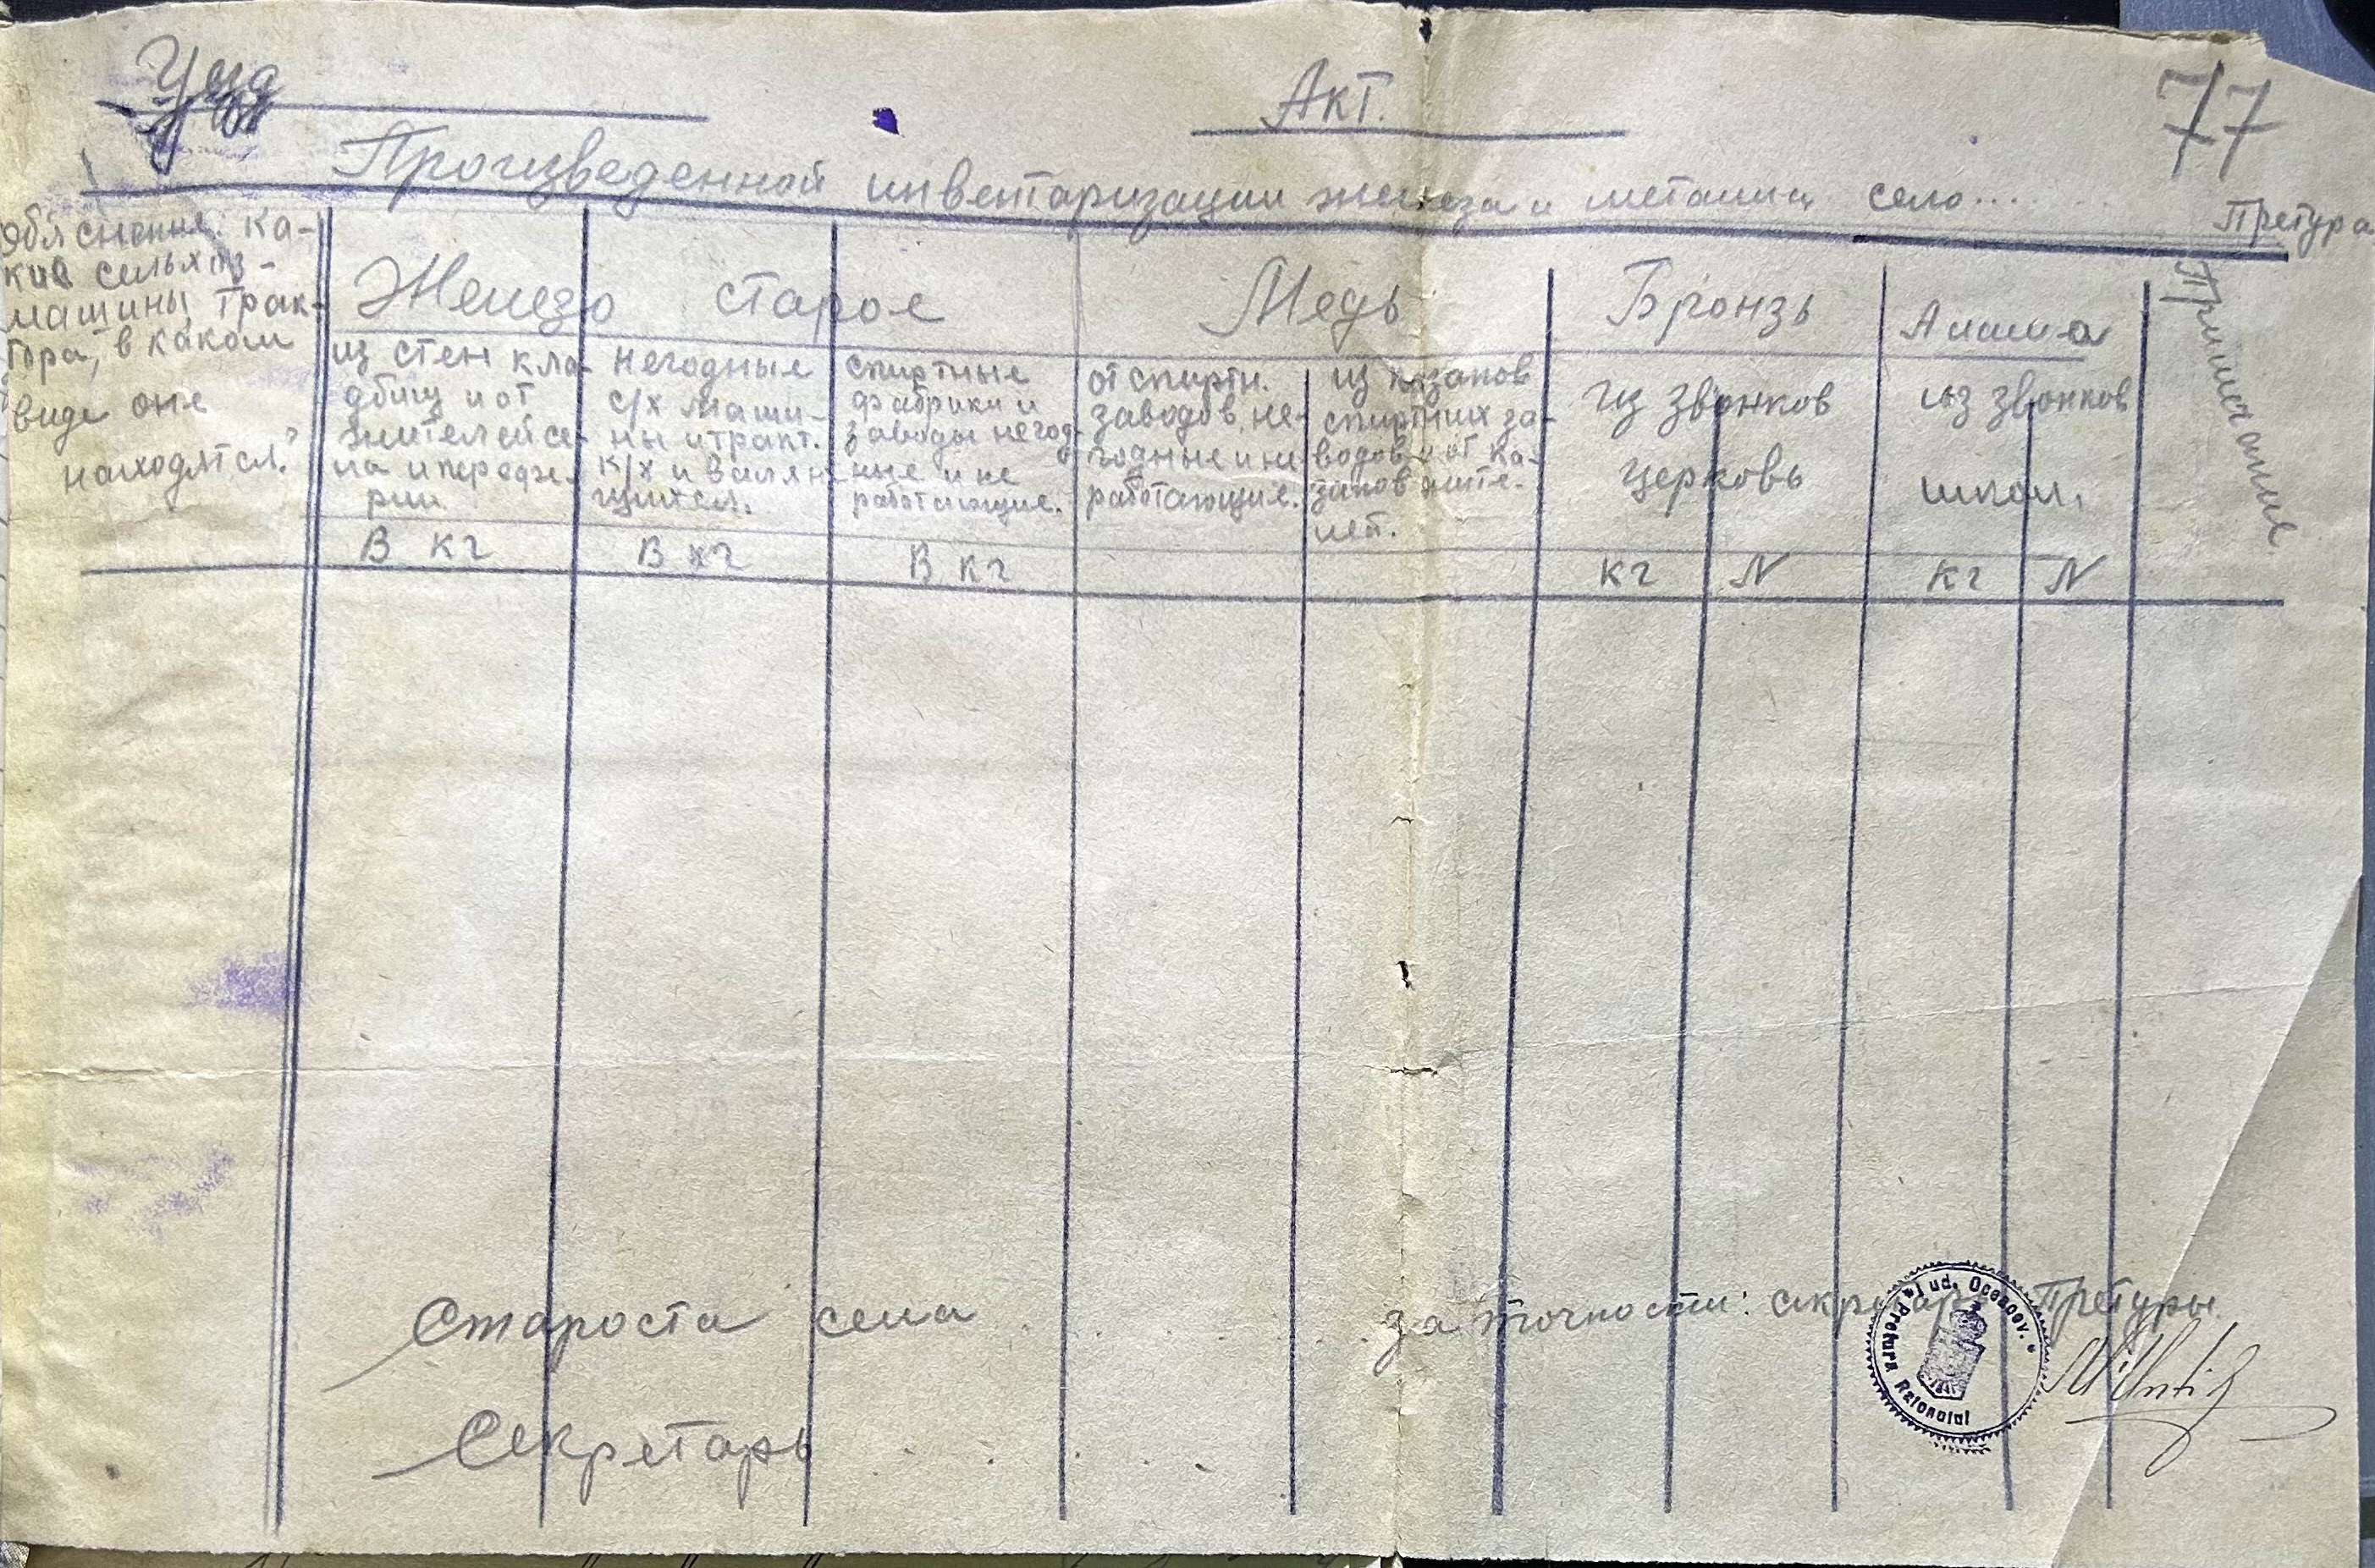 Уезд
Акт.
77
Произведенной инвентаризации железа и металии село....
Претура
Обяснения: ка-
кие сельхоз-
машины, трак-
тора, в каком
виде оне
находятся?
Железо старое
Медь
Бронзь
Алюма
Примечание
из стен кла-
дбищ и от
жителей се-
ла и передже-
рии
негодные
с/х маши-
ны и тракт.
к/х и валяю-
щихся.
спиртные
фабрики и
заводы негод-
ные и не
работающие.
от спиртн.
заводов, не-
годные и не
работающие.
из казанов
спиртних за-
водов и от ка-
занов жите-
лей.
из звонков
церковь
из звонков
школ.
В кг
В кг
В кг
кг
N
кг
N
Староста села
за точности: секретарь Претуры
Секретарь
Jud. Oceacov.
Pretura Raionului